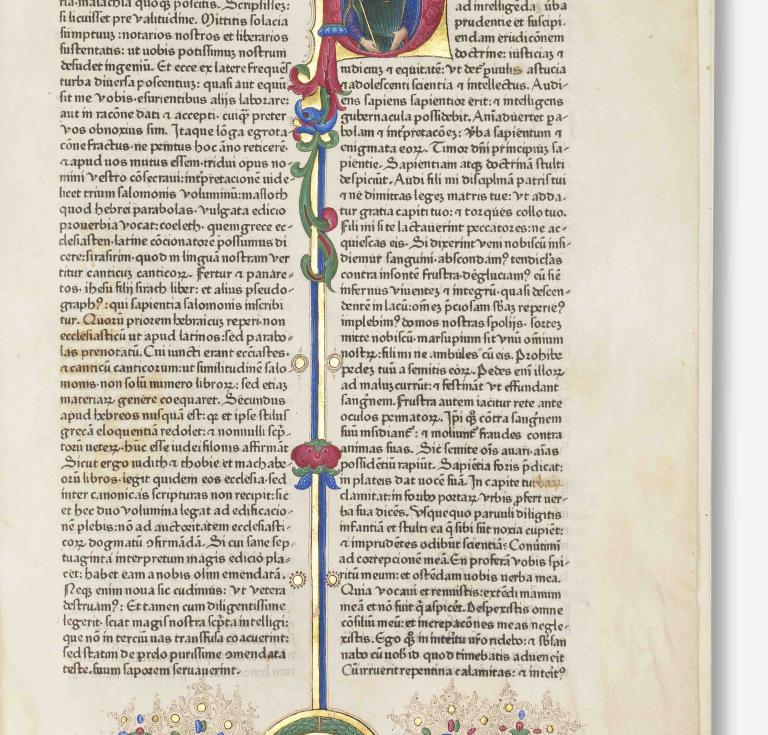 ria·malachia quoq; poscitis. Scripsissē:
si licuisset pre valitudine. Mittitis solacia
sumptuū: notarios nostros et librarios
sustentatis: ut vobis potissimū nostrum
desudet ingeniū. Et ecce ex latere frequēs
turba diversa poscentiū: quasi aut equū
sit me vobis·esurientibus alijs laborare:
aut in racōne dati ⁊ accepti· cuiq̄ preter
vos obnoxius sim. Itaque lōga egrota
cōne fractus·ne penitus hoc āno reticerē·
⁊ apud vos mutus essem·tridui opus no-
mini vestro cōsecravi: intp̄retacionē vide
licet trium salomonis voluminū: masloth
quod hebrei parabolas· vulgata edicio
prouerbia vocat: coeleth· quem grece ec-
clesiasten·latine cōcionatorē possumus di
cere: sirasirim·quod in linguā nostram ver
titur canticū canticoꝝ. Fertur ⁊ panare-
tos· ihesu filij sirach liber: et alius pseudo-
graph⁹: qui sapientia salomonis inscribi
tur. Quorū priorem hebraicuʒ reperi·non
ecclesiasticū ut apud latinos: sed parabo-
las prenotatū. Cui iuncti erant ecclastes·
⁊ canticū canticorum: ut similitudinē salo
monis·non solū numero libroꝝ: sed etiaʒ
materiaꝝ genere coequaret. Secundus
apud hebreos nusquā est: q̄ et ipse stilus
grecā eloquentiā redolet: ⁊ nonnulli scp̄-
torū veteꝝ·hūc esse iudei filonis affirmāt
Sicut ergo iudith ⁊ thobie et machabe-
orū libros·legit quidem eos ecclesia·sed
inter canonicas scripturas non recipit: sic
et hec duo volumina legat ad edificacio-
nē plebis: nō ad auctoritatem ecclesiasti-
coꝝ dogmatū ꝯfirmādā. Si cui sane sep-
tuaginta interpretum magis edicio pla-
cet: habet eam a nobis olim emendatā.
Neq; enim noua sic cudimus: vt vetera
destruam⁹: Et tamen cum diligentissime
legerit· sciat magis nostra scp̄ta intelligi:
que nō in terciū vas transfusa coacuerint:
sed statim de prelo purissime ꝯmendata
teste·suum saporem seruauerint.
ad intelligēda v̄ba
prudentie et suscipi-
endam erudicōnem
doctrine: iusticiaʒ ⁊
iudiciuʒ ⁊ equitatē: vt det̄ puulis astucia
⁊ adolescenti scientia ⁊ intellectus. Audi-
ens sapiens sapientior erit: ⁊ intelligens
gubernacula possidebit. Aniaduertet pa-
bolam ⁊ int̄pretacōeʒ: v̄ba sapientum ⁊
enigmata eoꝝ. Timor dn̄i principiū sa-
pientie. Sapientiam atq; doctrinā stulti
despiciūt. Audi fili mi disciplinā patris tui
⁊ ne dimittas legeʒ matris tue: vt adda-
tur gratia capiti tuo: ⁊ torques collo tuo.
Fili mi si te lactauerint peccatores: ne ac-
quiescas eis. Si dixerint veni nobiscū insi-
diemur sanguini·abscondam⁹ tendiclas
contra insontē frustra·deglucīam⁹ eū sic̄
infernus viuenteʒ ⁊ integrū·quasi descen-
dentē in lacū: om̄eʒ p̄ciosam sb̄aʒ reperie⁹
implebim⁹ domos nostras spolijs· sorteʒ
mitte nobiscū·marsupiū sit vnū omium
nostꝝ: fili mi ne ambules cū eis. Prohibe
pedeʒ tuū a semitis eoꝝ. Pedes eni illoꝝ
ad maluʒ currūt: ⁊ festināt vt effundant
sang̈nem. Frustra autem iacitur rete ante
oculos pennatoꝝ. Ip̄i q̊ȝ cōtra sang̈nem
suū insidiant᷑: ⁊ moliunt᷑ fraudes contra
animas suas. Sic semite ois auari·aīas
possidētiū rapiūt. Sapiētia foris p̄dicat:
in plateis dat vocē suā. In capite turbaꝝ
clamitat: in foribȝ portaꝝ vrbis ꝓfert ver-
ba sua dicēs. Vsquequo paruuli diligitis
infantiā et stulti ea q̄ sibi sūt noxia cupiēt:
⁊ imprudētes odibūt scientiā? Conūtimi
ad correpcionē meā. En proferā vobis spi-
ritū meum: et ostēdam vobis verba mea.
Quia vocaui et rennistis: extēdi manum
meā et nō fuit q̄ aspicēt. Despexistis omne
cōsiliū meū: et increpacōnes meas negle-
xistis. Ego q̊ȝ in interitu vr̄o ridebo: ⁊ sb̄san
nabo cū vob̄ id quod timebatis aduen̄it
Cū irruerit repentina calamitas: ⁊ inteit⁹